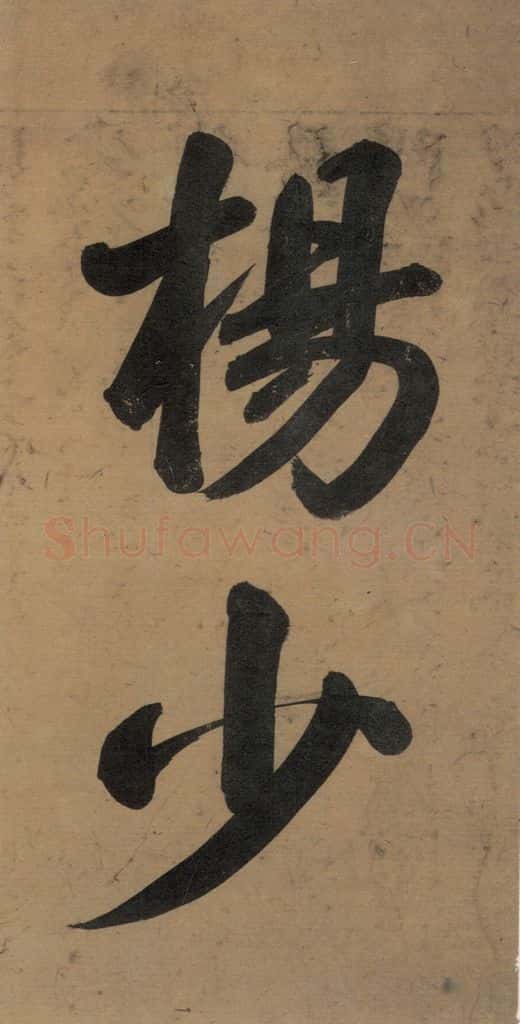 楊少
Shufawang.CN